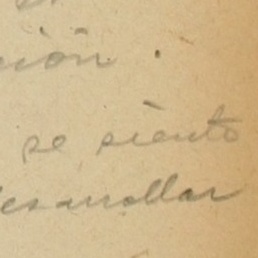 ión.
se siento
desarrollar